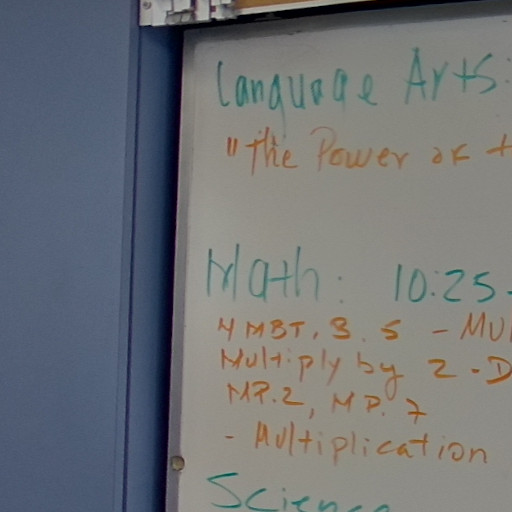 Language Arts:
"The Power of t
Math: 10:25-
4 MBT. B. 5 - Mul
Multiply by 2-D
MP.2, MP.7
- Multiplication
Science